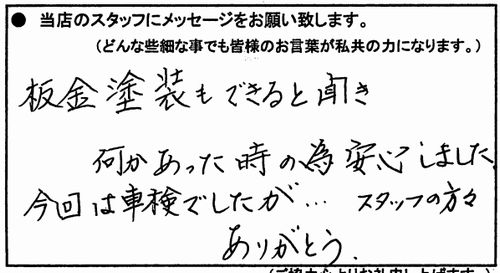 ● 当店のスタッフにメッセージをお願い致します。
(どんな些細な事でも皆様のお言葉が私共の力になります。)
板金塗装もできると聞き
何かあった時の為安心しました。
今回は車検でしたが… スタッフの方々
ありがとう.